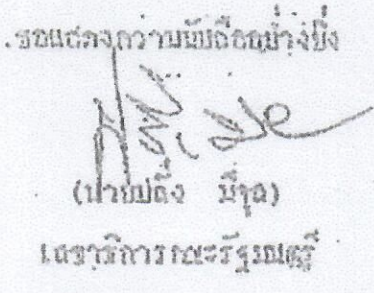 ขอแสดงความนับถืออย่างยิ่ง
(นายปลั่ง มีจุล)
เลขาธิการคณะรัฐมนตรี